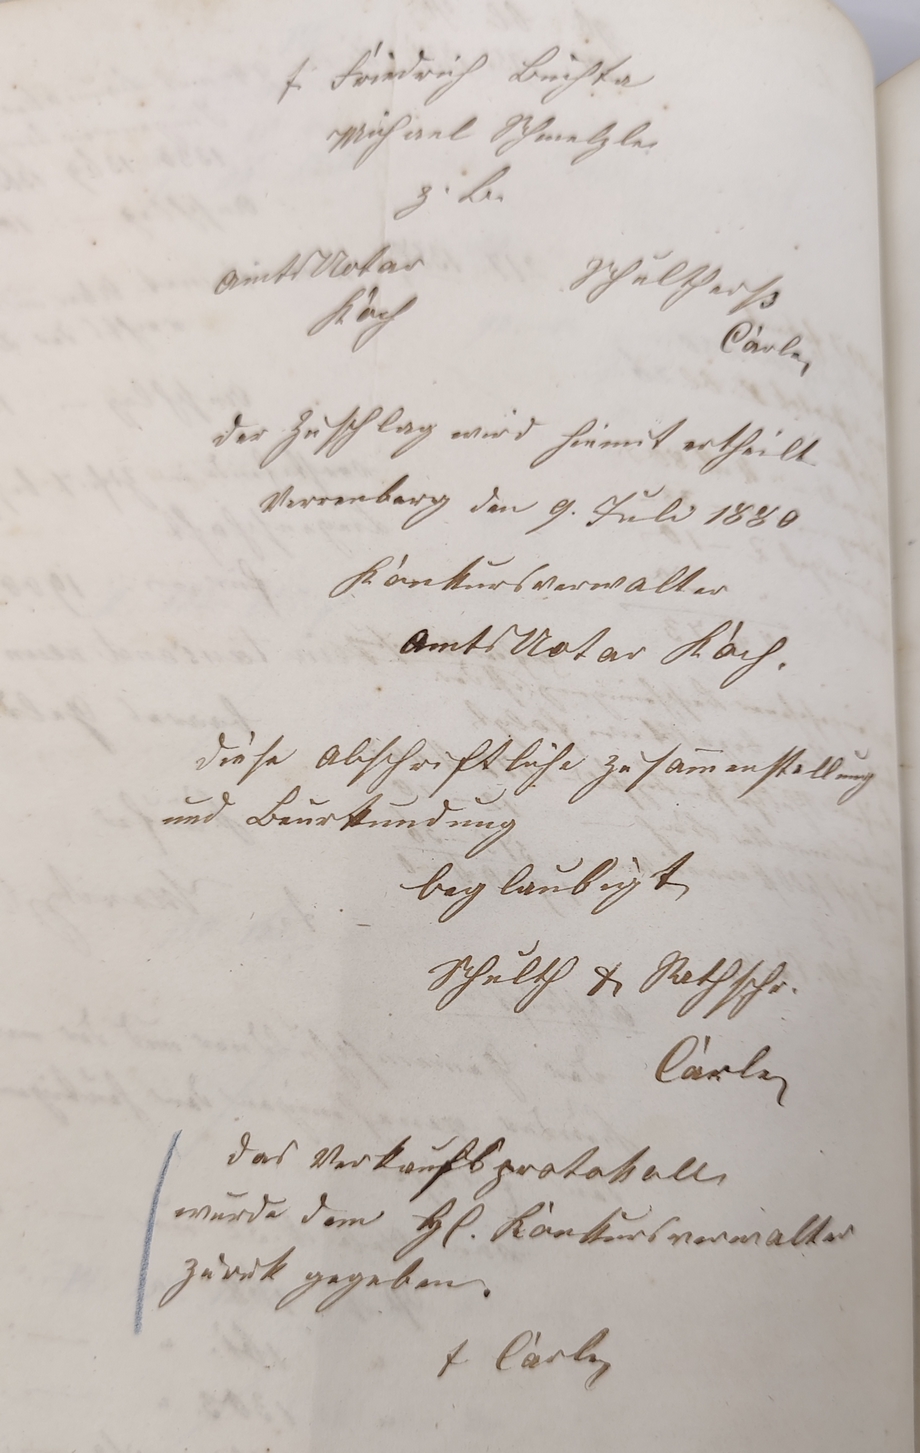 t. Friedrich Buchta
Michael Schmelzle
z. B.
AmtsNotar Schultheiß
Koch Carle
Der Zuschlag wird hiemit ertheilt
Verrenberg den 9. Juli 1880
Konkursverwalter
AmtsNotar Koch.
Diese abschriftliche Zusammenstellung
und Beurkundung
beglaubigt
Schulth & Rathschr.
Carle
Das Verkaufsprotokoll
wurde dem H. Konkursverwalter
zurük gegeben.
t Carle